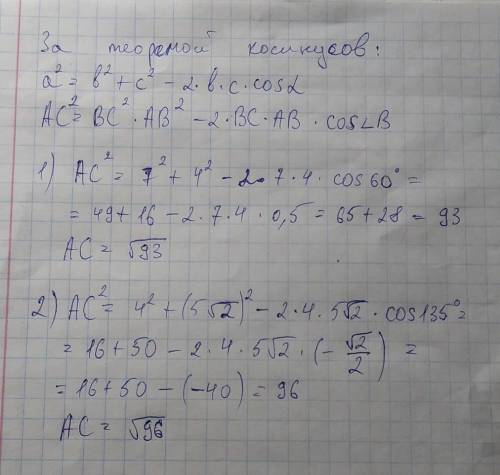 За теоремой косинусов:
a² = b² + c² - 2·b·c·cosα
AC² = BC² · AB² - 2·BC·AB · cos∠B
1) AC² = 7² + 4² - 2·7·4·cos60° =
= 49 + 16 - 2·7·4·0,5 = 65 + 28 = 93
AC = √93
2) AC² = 4² + (5√2)² - 2·4·5√2·cos135° =
= 16 + 50 - 2·4·5√2·(-√2/2) =
= 16 + 50 - (-40) = 96
AC = √96